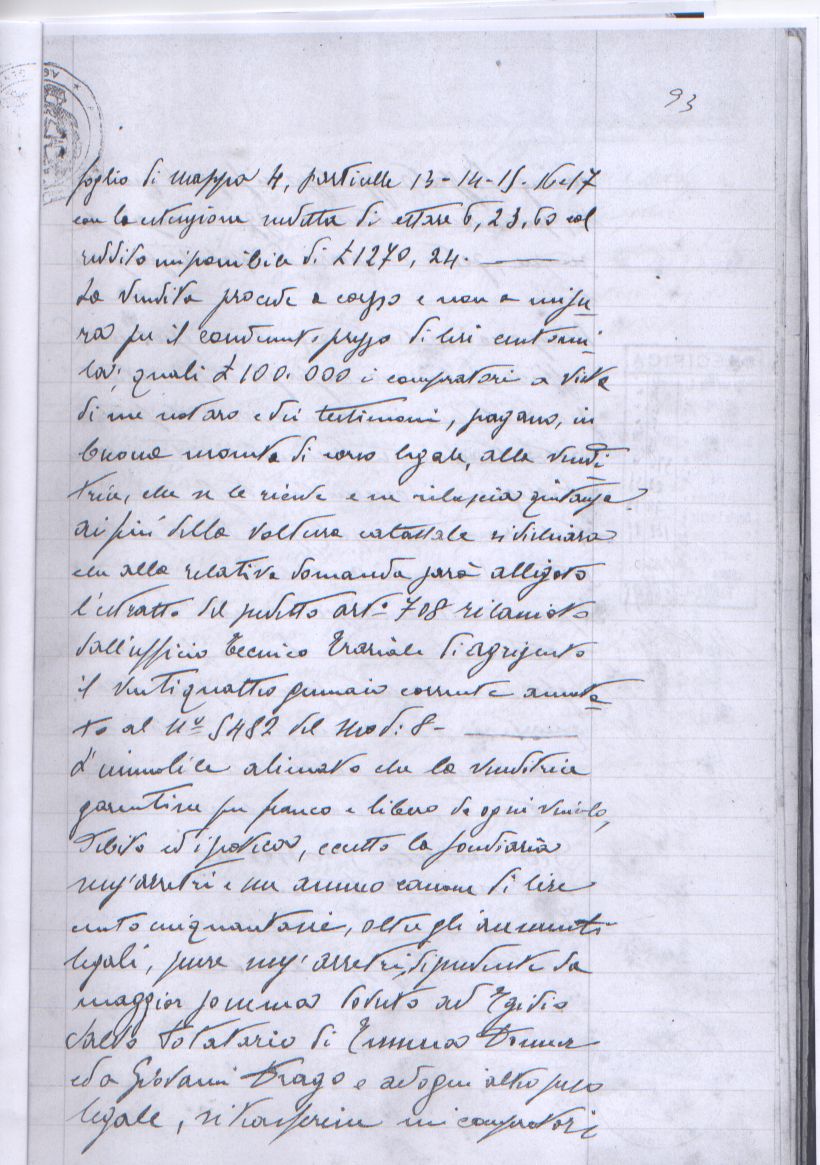 93
foglio di mappa 4, particelle 13-14-15-16e17
con la estensione ridotta di ettare 6,23,60 col
reddito imponibile di £1270,24.
La vendita procede a corpo e non a misu-
ra per il convenuto prezzo di lire centomi-
la; quali £100.000 i compratori a vista
di me notaro e dei testimoni, pagano, in
buona moneta di corso legale, alla vendi-
trice, che se le riceve e ne rilascia quitanza.
ai fini della voltura catastale si dichiara
che alla relativa domanda sarà alligato
l'estratto del predetto art.° 708 rilasciato
dall'ufficio Tecnico Erariale di Agrigento
il ventiquattro gennaio corrente annota-
to al N° 5482 del Mod: 8-
L'immobile alienato che la venditrice
garentisce per franco e libero da ogni vincolo,
debito ed ipoteca, eccetto la fondiaria
senz'arretri e un annuo canone di lire
cento cinquantasei, oltre gli aumenti
legali, pure senz'arretri, dipendente da
maggior somma dovuta ad Egidio
di
ed a Giovanni Drago e ad ogni altro peso
legale, si trasferisce nei compratori